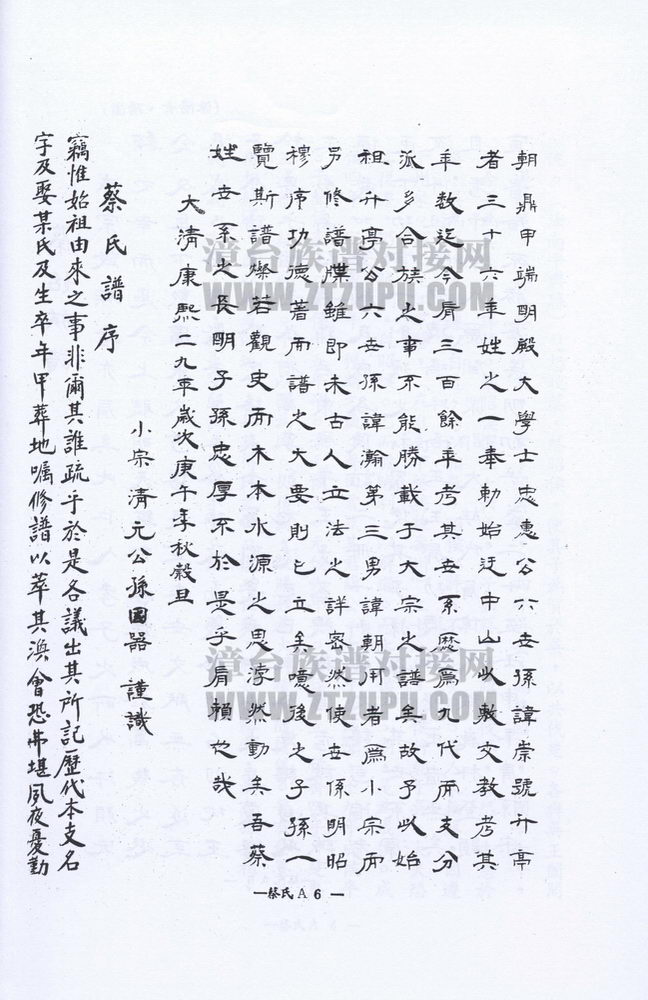 朝鼎甲端明殿大學士忠惠公六世孫諱崇號升亭
者三十六年姓之一奉勅始迁中山以敷文教考其
年数迄今肩三百餘年考其世系歷爲九代而支分
派多合族之事不能勝載于大宗之譜矣故予以始
祖升亭公六世孫諱瀚第三男諱朝用者爲小宗而
另修譜牒雖即未古人立法之詳密然使世係明昭
穆序功德著而譜之大要則已立矣噫後之子孫一
覽斯譜燦若觀史而木本水源之思浡然動矣吾蔡
姓世系之長明子孫忠厚不於是乎肩賴也哉
大清康熙二九年歲次庚午年秋穀旦
小宗清元公孫國器謹識
蔡氏譜序
竊惟始祖由來之事非爾其誰疏乎於是各議出其所記歷代本支名
字及娶某氏及生卒年甲葬地囑修譜以萃其渙會恐弗堪夙夜憂勤
—蔡氏A6—
漳台族谱对接网
WWW.ZTZUPU.COM
漳台族谱对接网
WWW.ZTZUPU.COM